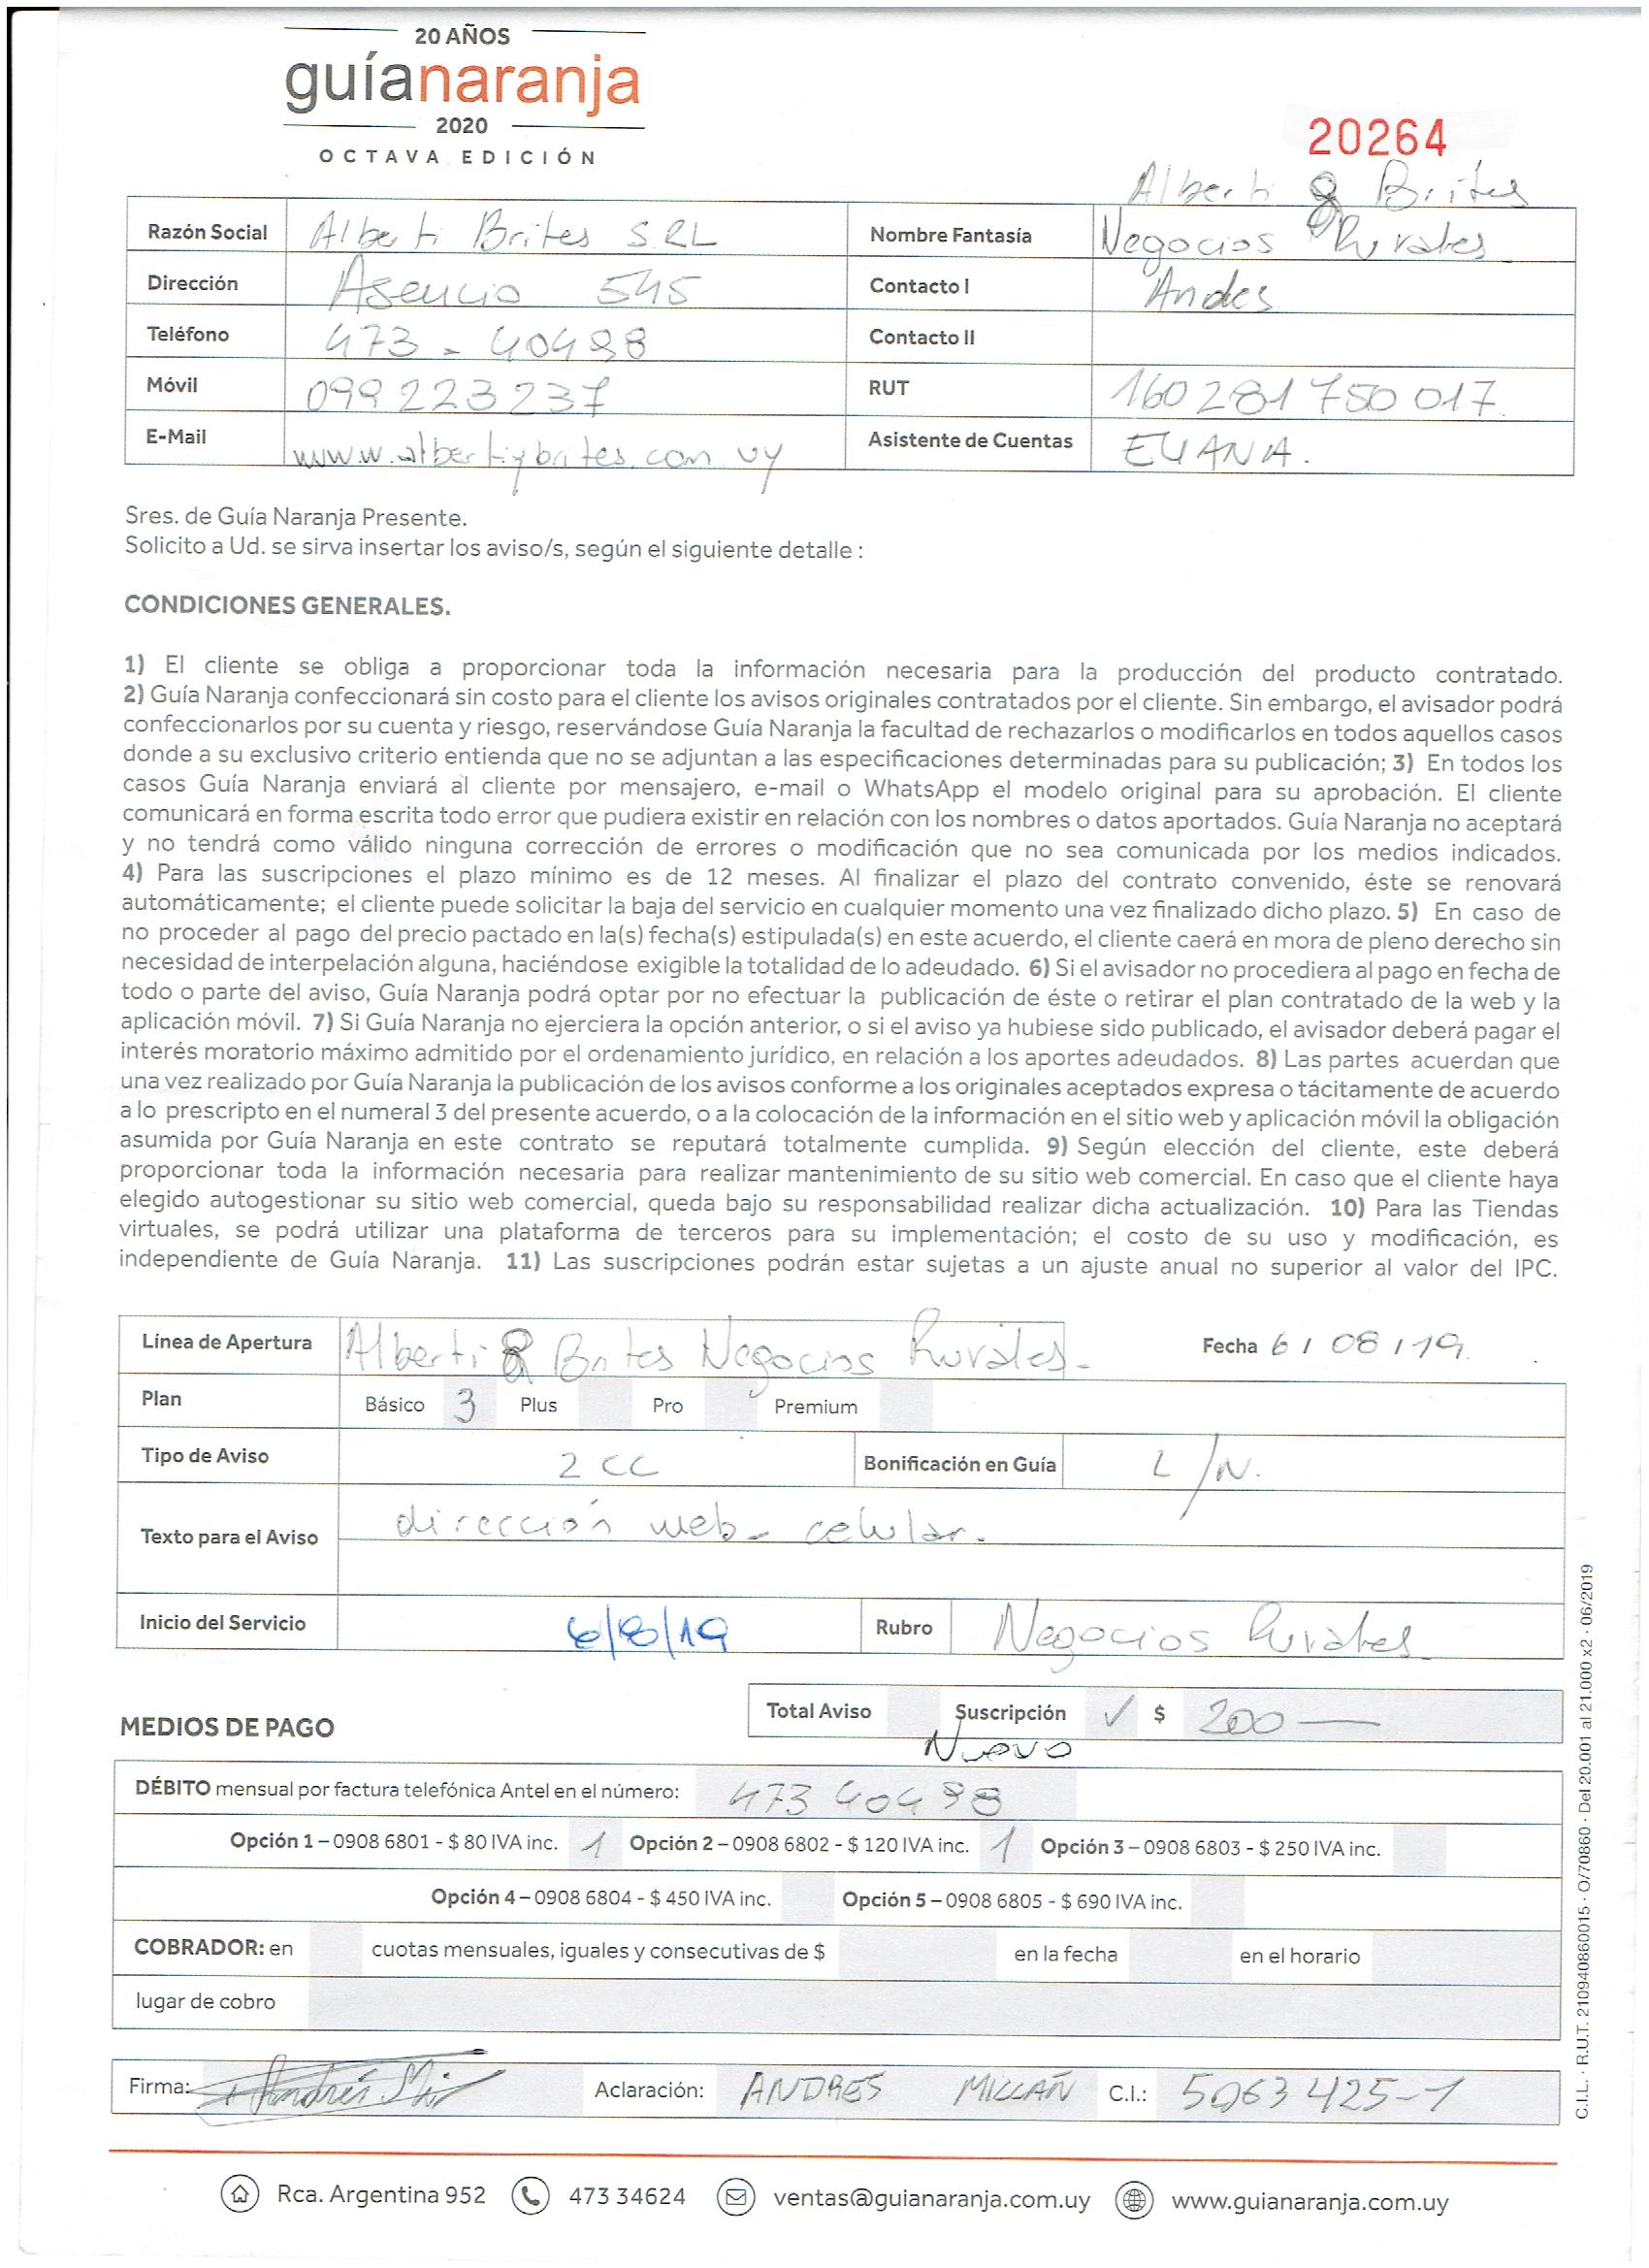 20 AÑOS
guíanaranja
2020
OCTAVA EDICIÓN
20264
Alberti & Brites
Razón Social Alberti Brites S.RL Nombre Fantasía Negocios Rurales
Dirección Asencio 545 Contacto I Andes
Teléfono 473 - 40498 Contacto II
Móvil 099 223 237 RUT 160281750017
E-Mail www.albertiybrites.com.uy Asistente de Cuentas ELIANA.
Sres. de Guía Naranja Presente.
Solicito a Ud. se sirva insertar los aviso/s, según el siguiente detalle :
CONDICIONES GENERALES.
1) El cliente se obliga a proporcionar toda la información necesaria para la producción del producto contratado.
2) Guía Naranja confeccionará sin costo para el cliente los avisos originales contratados por el cliente. Sin embargo, el avisador podrá
confeccionarlos por su cuenta y riesgo, reservándose Guía Naranja la facultad de rechazarlos o modificarlos en todos aquellos casos
donde a su exclusivo criterio entienda que no se adjuntan a las especificaciones determinadas para su publicación; 3) En todos los
casos Guía Naranja enviará al cliente por mensajero, e-mail o WhatsApp el modelo original para su aprobación. El cliente
comunicará en forma escrita todo error que pudiera existir en relación con los nombres o datos aportados. Guía Naranja no aceptará
y no tendrá como válido ninguna corrección de errores o modificación que no sea comunicada por los medios indicados.
4) Para las suscripciones el plazo mínimo es de 12 meses. Al finalizar el plazo del contrato convenido, éste se renovará
automáticamente; el cliente puede solicitar la baja del servicio en cualquier momento una vez finalizado dicho plazo. 5) En caso de
no proceder al pago del precio pactado en la(s) fecha(s) estipulada(s) en este acuerdo, el cliente caerá en mora de pleno derecho sin
necesidad de interpelación alguna, haciéndose exigible la totalidad de lo adeudado. 6) Si el avisador no procediera al pago en fecha de
todo o parte del aviso, Guía Naranja podrá optar por no efectuar la publicación de éste o retirar el plan contratado de la web y la
aplicación móvil. 7) Si Guía Naranja no ejerciera la opción anterior, o si el aviso ya hubiese sido publicado, el avisador deberá pagar el
interés moratorio máximo admitido por el ordenamiento jurídico, en relación a los aportes adeudados. 8) Las partes acuerdan que
una vez realizado por Guía Naranja la publicación de los avisos conforme a los originales aceptados expresa o tácitamente de acuerdo
a lo prescripto en el numeral 3 del presente acuerdo, o a la colocación de la información en el sitio web y aplicación móvil la obligación
asumida por Guía Naranja en este contrato se reputará totalmente cumplida. 9) Según elección del cliente, este deberá
proporcionar toda la información necesaria para realizar mantenimiento de su sitio web comercial. En caso que el cliente haya
elegido autogestionar su sitio web comercial, queda bajo su responsabilidad realizar dicha actualización. 10) Para las Tiendas
virtuales, se podrá utilizar una plataforma de terceros para su implementación; el costo de su uso y modificación, es
independiente de Guía Naranja. 11) Las suscripciones podrán estar sujetas a un ajuste anual no superior al valor del IPC.
Línea de Apertura Alberti & Brites Negocios Rurales. Fecha 6 / 08 / 19
Plan Básico 3 Plus Pro Premium
Tipo de Aviso 2 CC Bonificación en Guía L/N.
Texto para el Aviso dirección web - celular.
Inicio del Servicio 6/8/19 Rubro Negocios Rurales
Total Aviso Suscripción ✓ $ 200 —
MEDIOS DE PAGO
Nuevo
DÉBITO mensual por factura telefónica Antel en el número: 473 40498
Opción 1 – 0908 6801 - $ 80 IVA inc. 1 Opción 2 – 0908 6802 - $ 120 IVA inc. 1 Opción 3 – 0908 6803 - $ 250 IVA inc.
Opción 4 – 0908 6804 - $ 450 IVA inc. Opción 5 – 0908 6805 - $ 690 IVA inc.
COBRADOR: en cuotas mensuales, iguales y consecutivas de $ en la fecha en el horario
lugar de cobro
Firma: Aclaración: ANDRES MILLAN C.I.: 5063425-1
Rca. Argentina 952 473 34624 ventas@guianaranja.com.uy www.guianaranja.com.uy
C.I.L. · R.U.T. 210940860015 · O/70860 · Del 20.001 al 21.000 x2 · 06/2019